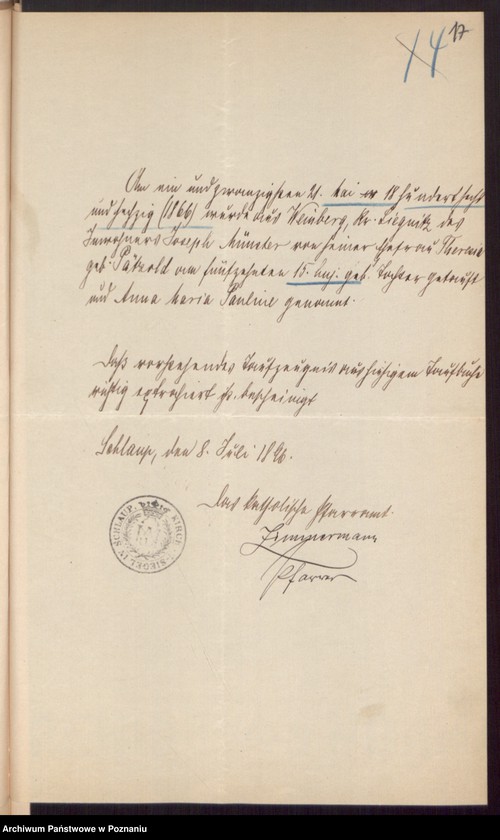 14 17
Am ein und zwanzigsten 21. Mai 18 hundert sechs
und sechzig (1866) wurde aus Weinberg, Kr. Liegnitz des
Inwohners Joseph Münster von seiner Ehefrau Theresia
geb. am fünfzehnten 15. huj. geb. Tochter getauft
und Anna Maria Pauline genannt.
Daß vorstehendes Taufzeugnis aus hiesigem Taufbuche
richtig extrahiert ist, bescheinigt
Schlaup, den 8. Juli 1896.
Das katholische Pfarramt.
Zimmermann
Pfarrer
KIRCHEN SIEGEL IN SCHLAUP
Archiwum Państwowe w Poznaniu